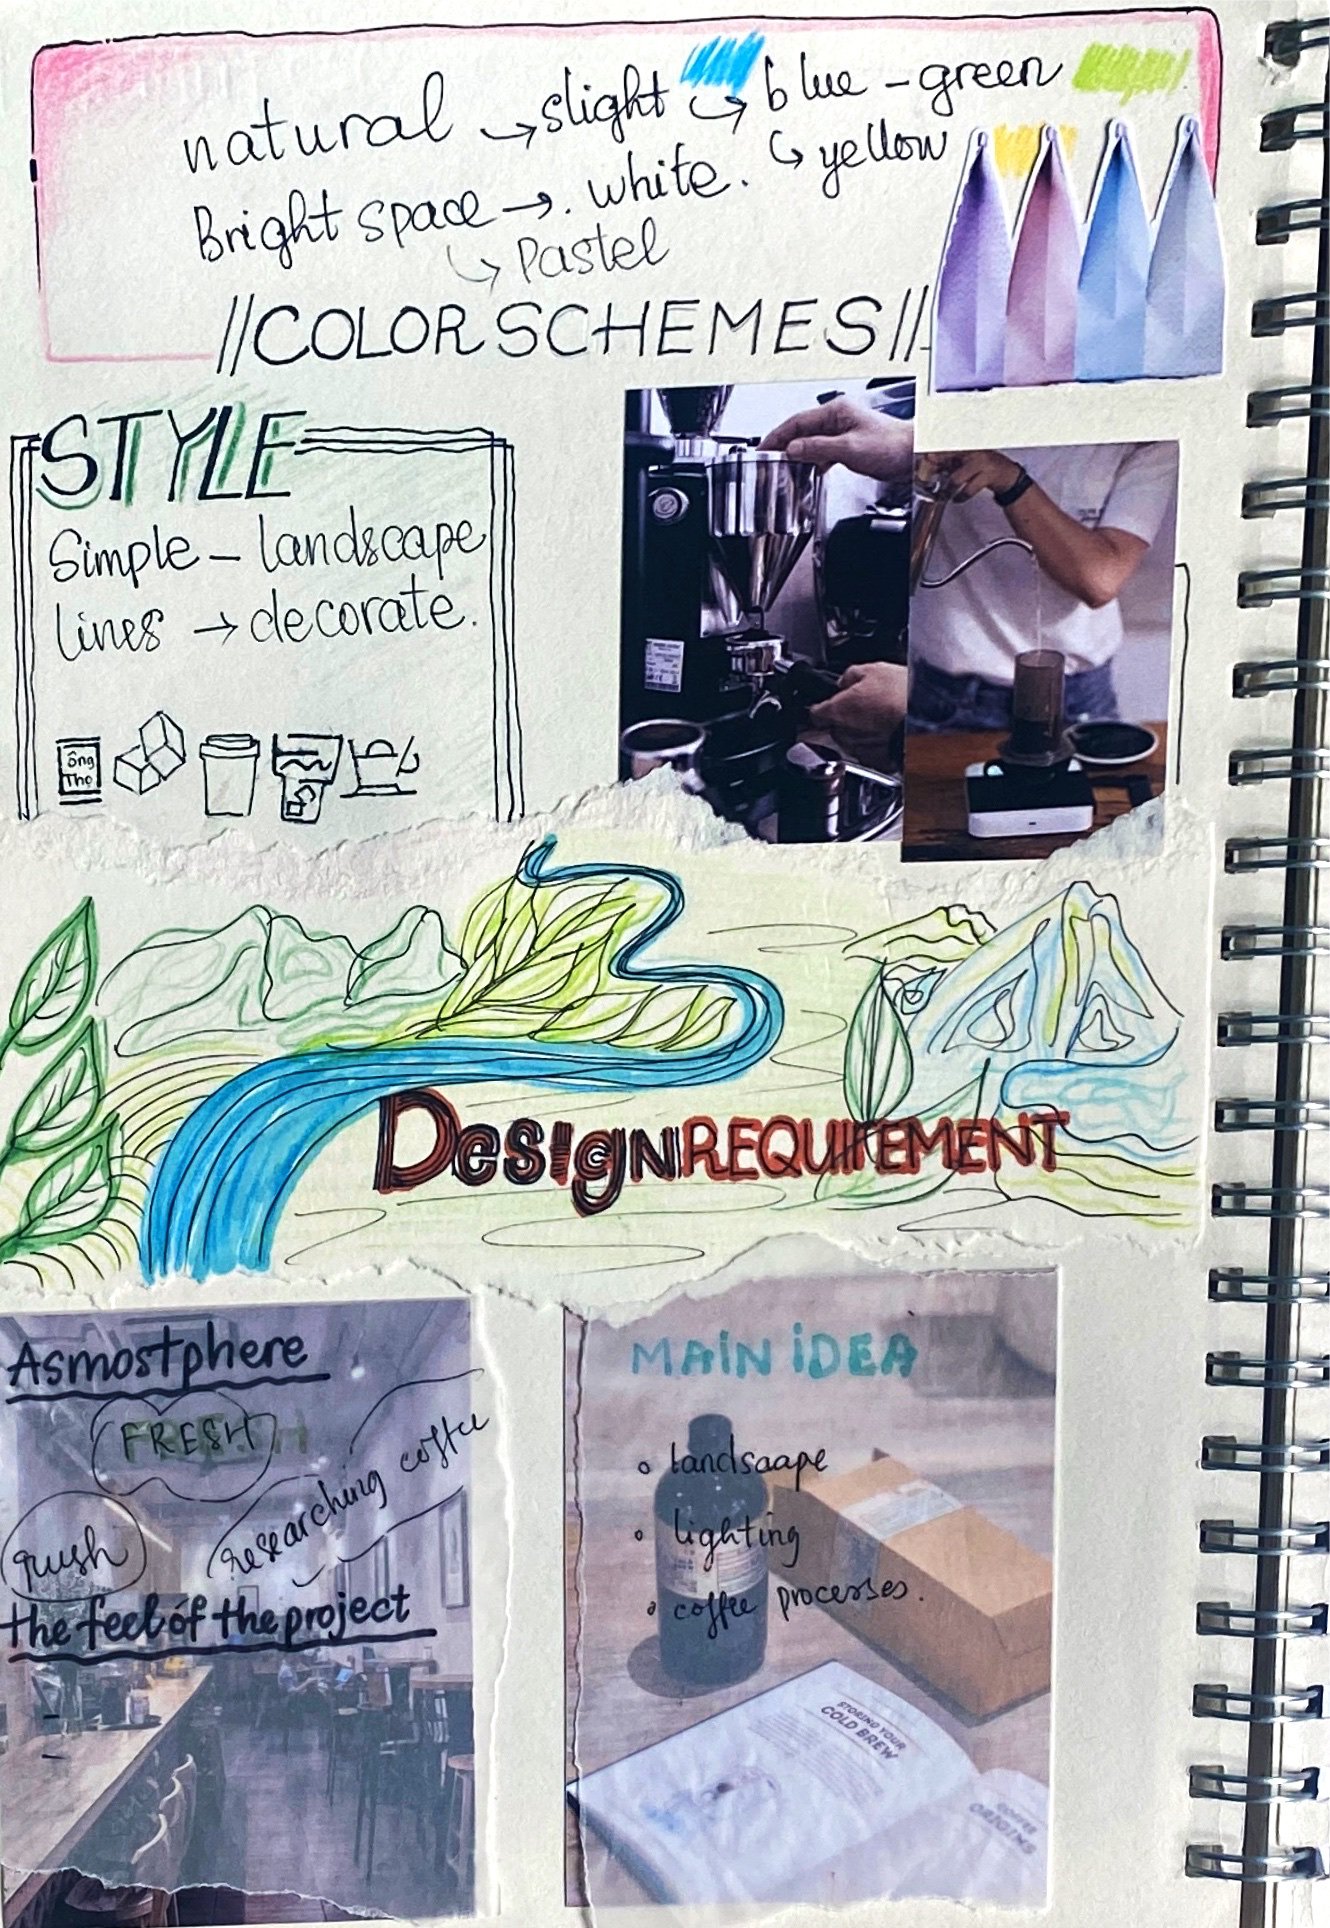 natural → slight → blue - green
↳ yellow
Bright space →. white.
↳ Pastel
//COLOR SCHEMES//
STYLE
Simple - landscape
lines → decorate.
ông
Thọ
Design REQUIREMENT
Asmostphere
FRESH
researching coffee
the feel of the project
MAIN iDEA
landsaape
lighting
coffee processes.
STORING YOUR
COLD BREW
COFFEE
ORIGINS